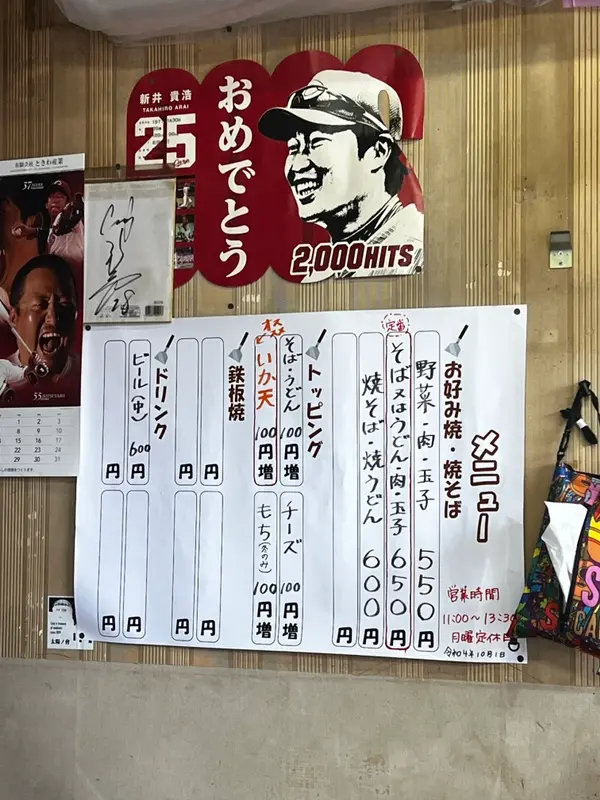 新井 貴浩
TAKAHIRO ARAI
25
おめでとう
2,000HITS
有限会社 ときわ産業
37
55
メニュー
お好み焼・焼そば
野菜・肉・玉子 550円
定番
そば又はうどん・肉・玉子 650円
焼そば・焼うどん 600円
円
トッピング
そば・うどん 100円増
チーズ 100円増
いか天 100円増
もち(冬のみ) 100円増
鉄板焼
円
円
円
円
ドリンク
ビール(中) 600円
円
円
円
営業時間
11:00〜13:30
月曜定休日
令和4年10月1日